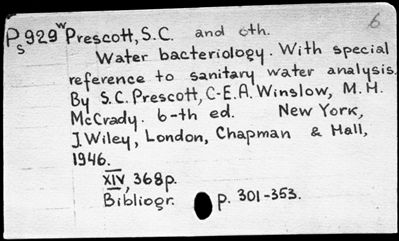 6
Ps929w Prescott, S.C. and oth.
Water bacteriology. With special
reference to sanitary water analysis.
By S.C. Prescott, C-E.A. Winslow, M.H.
McCrady. 6-th ed. New York,
J.Wiley, London, Chapman & Hall,
1946.
XIV, 368p.
Bibliogr. p. 301-353.